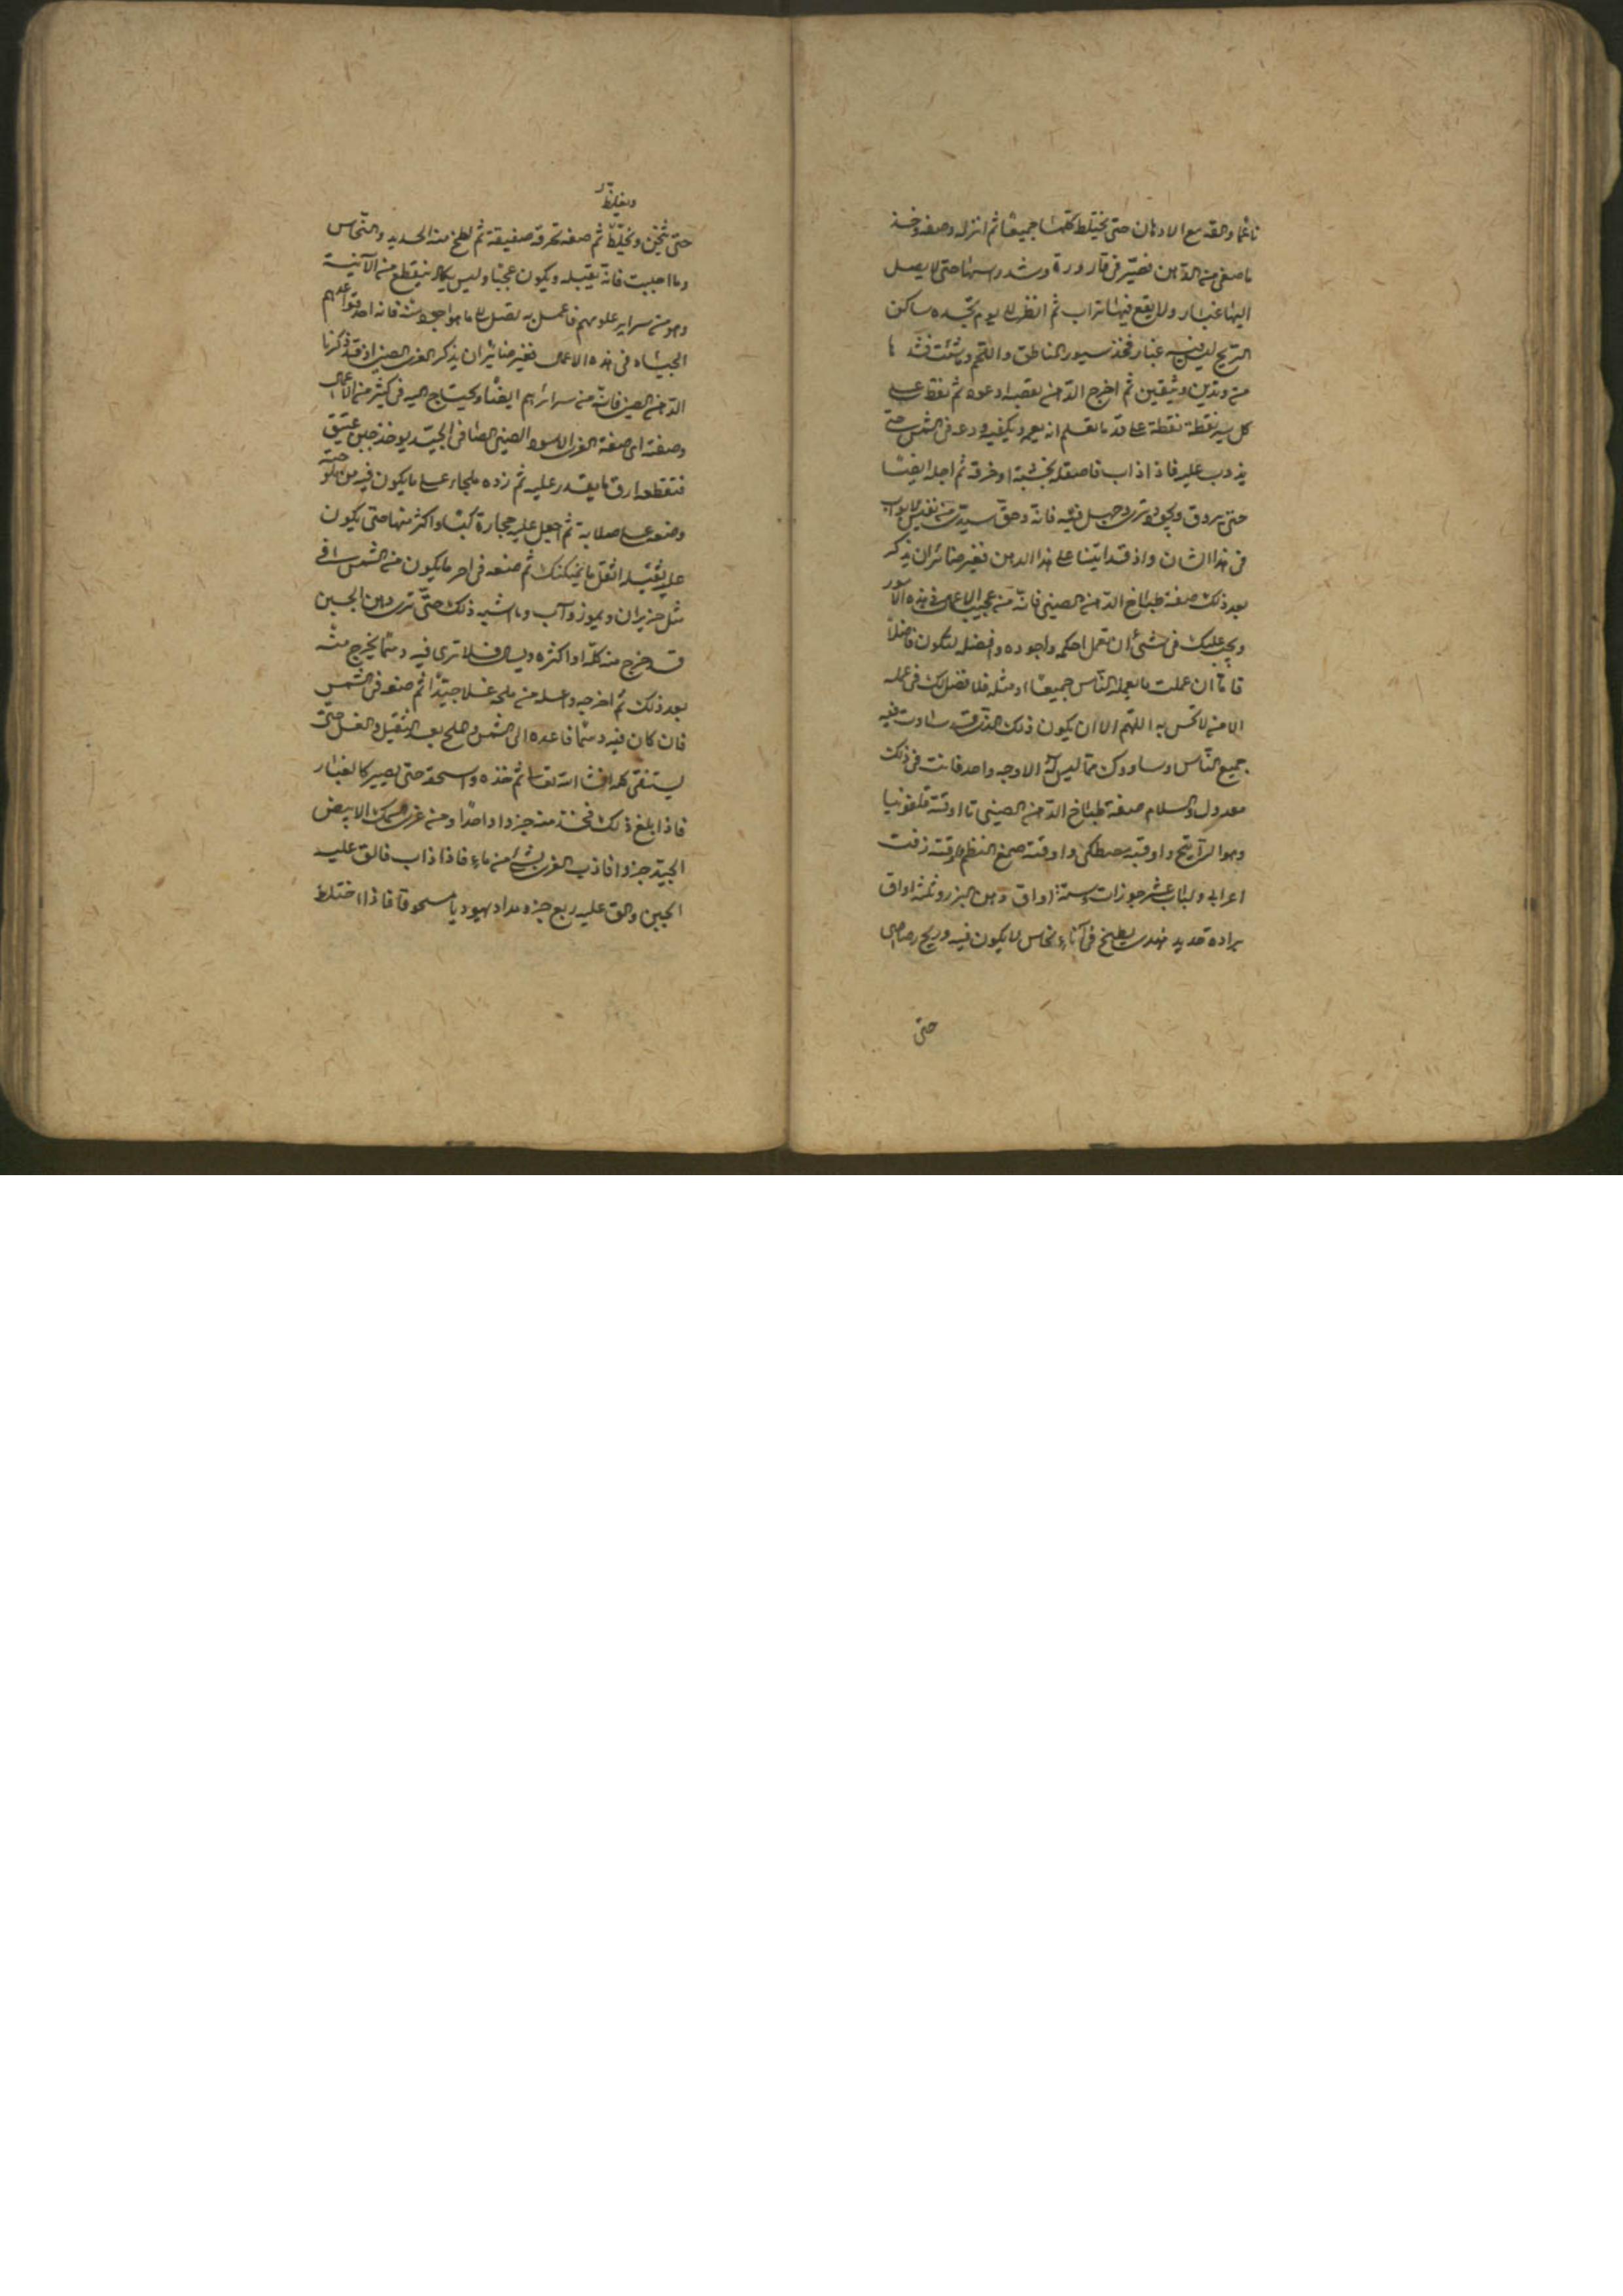 ناعما والقه مع الادهان حتى يختلط كلها جميعا ثم انزله وصفه وخذ
ما صفى من الدهن فصيّر فى قارورة وشد راسها حتى لا يصل
اليها غبار ولا يقع فيها تراب ثم انظر الى يوم تجده ساكن
الريح ليس فيه غبار فخذ سيور الناطق واللجم وما شئت فشدها
من وتدين وثيقين ثم اخرج الدهن بقصبة او عود ثم نقط على
كل سير نقطة نقطة على قدر ما تعلم انه يعمه ويكفيه ودعه فى الشمس حتى
يذوب عليه فاذا ذاب فاصقله بخشبة او خرقة ثم اجله ايضا
حتى يروق ويجود وترى وجهك فيه فانه وحق سيدى من نفيس الابواب
فى هذا الشان واذ قد اتينا على هذا الدهن فغير ضائر ان يذكر
بعد ذلك صفة طباخ الدهن الصينى فانه من عجيب الاعمال فى هذه الامور
ويجب عليك فى شئ ان تعمل احكمه واجوده وافضله لتكون فاضلا
فاما ان عملت ما يعمله الناس جميعا او مثله فلا فضل لك فى عمله
الا من لا تحس به اللهم الا ان يكون ذلك الذى قد ساويت فيه
جميع الناس وساووك مما ليس له الا وجه واحد فانت فى ذلك
معذول والسلام صفة طباخ الدهن الصينى تا اوقية قلفونيا
وهو الراتينج واوقية مصطكى واوقية صمغ البطم واوقية زفت
اعرابى ولباب عشر جوزات وستة اواق دهن البزر وثمنة اواق
برادة حديد مهندى يطبخ فى اناء نحاس لا يكون فيه وريح رصاص
حتى
ويغلظ
حتى يثخن ويختلط ثم صفه بخرقة صفيقة ثم لطخ منه الحديد والنحاس
وما احببت فانه يقبله ويكون عجبا وليس يكاد ينقطع من الآنية
وهو من سراير علومهم فاعمل به تصل الى ما هو اجود منه فانه احد قواعدهم
الجياد فى هذه الاعمال فغير ضائر ان يذكر الغرى الصينى اذ قد ذكرنا
الدهن الصينى فانه من سرائرهم ايضا ويحتاج اليه فى كثير من الاعمال
وصفته اى صفة الغرى الاسود الصينى الصافى الجيد يوخذ جبن عتيق
فتقطعه ارق ما يقدر عليه ثم زده ملحا على ما يكون فيه من ملوحته
وضعه على صلابة ثم اجعل عليه حجارة كبشا واكثر منها حتى يكون
عليه ثقيلة اثقل ما يمكنك ثم ضعه فى احر ما يكون من الشمس فى
مثل حزيران وتموز وآب وما اشبه ذلك حتى ترى دهن الجبن
قد خرج منه كله او اكثره ويسال فلا ترى فيه دسما يخرج منه
بعد ذلك ثم اخرجه واغسله من ملحه غسلا جيدا ثم ضعه فى الشمس
فان كان فيه دسما فاعده الى الشمس والملح بعد التثقيل والغسل حتى
يستنقى كله انشا الله تعالى ثم خذه واسحقه حتى يصير كالغبار
فاذا بلغ ذلك فخذ منه جزءا واحدا ومن غرى السمك الابيض
الجيد جزءا فاذب الغرى بشئ من ماء فاذا ذاب فالق عليه
الجبن والق عليه ربع جزء مداد يهوديا مسحوقا فاذا اختلط